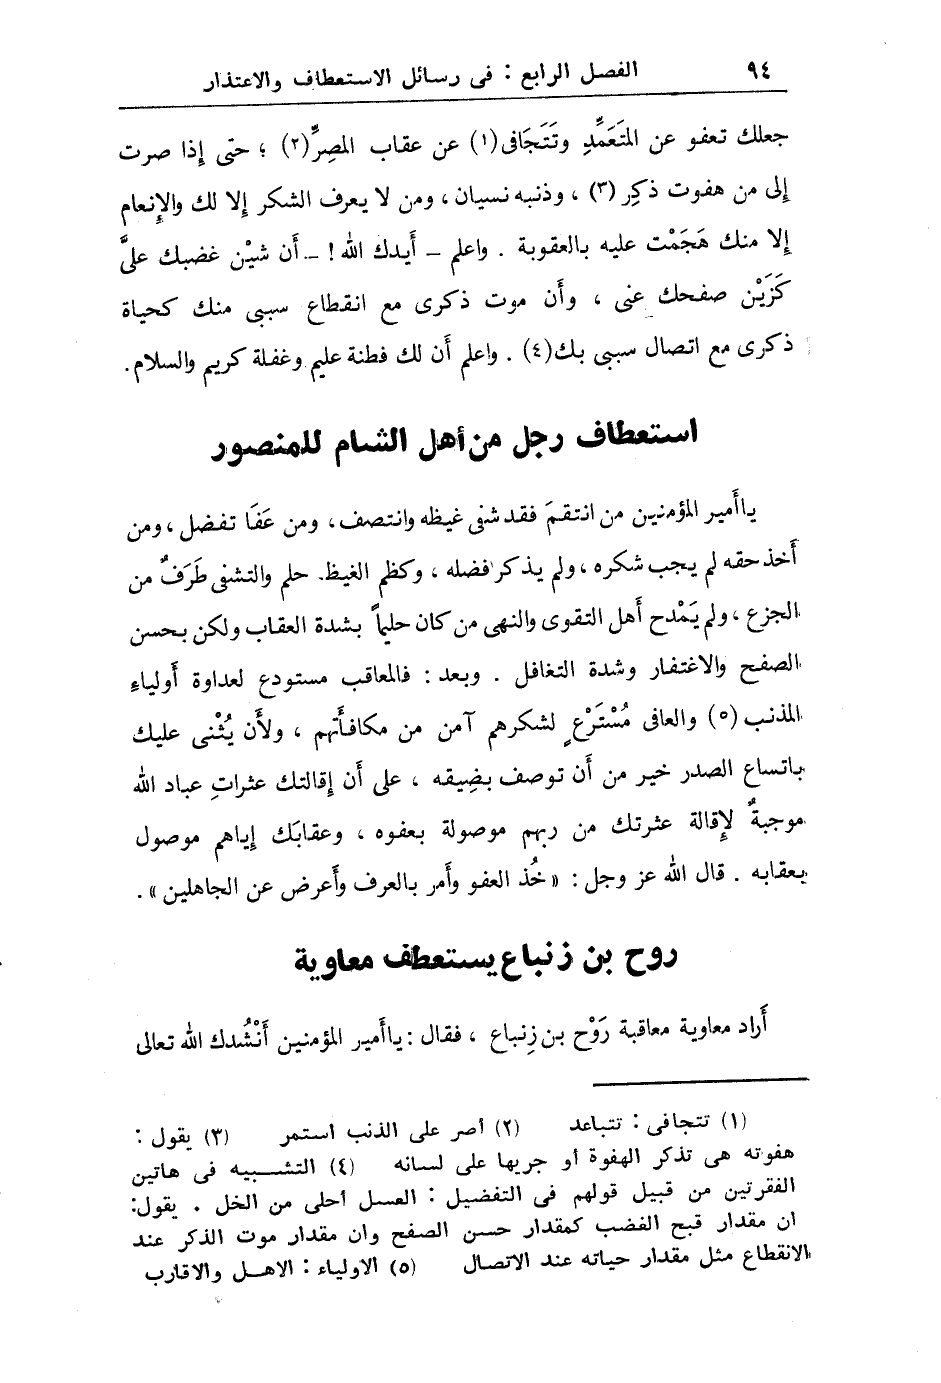 ٩٤ الفصل الرابع : فى رسائل الاستعطاف والاعتذار
جعلك تعفو عن المتَعَمِّدِ وتَتَجَافى(١) عن عقاب المصِرِّ(٢) ؛ حتى إذا صرت
إلى من هفوت ذكِر (٣) ، وذنبه نسيان ، ومن لا يعرف الشكر إلا لك والإنعام
إلا منك هَجَمْت عليه بالعقوبة . واعلم – أيدك الله ! – أن شيْن غضبك علىَّ
كَزَيْن صفحك عنى ، وأن موت ذكرى مع انقطاع سببى منك كحياة
ذكرى مع اتصال سببى بك(٤) . واعلم أن لك فطنة عليم وغفلة كريم والسلام.
استعطاف رجل من أهل الشام للمنصور
ياأمير المؤمنين من انتقمَ فقد شفى غيظه وانتصف، ومن عَفَا تفضل ، ومن
أخذ حقه لم يجب شكره ، ولم يذكر فضله ، وكظم الغيظ. حلم والتشفى طَرَفٌ من
الجزع ، ولم يَمْدح أهل التقوى والنهى من كان حليماً بشدة العقاب ولكن بحسن
الصفح والاغتفار وشدة التغافل . وبعد : فالمعاقب مستودع لعداوة أولياءِ
المذنب (٥) والعافى مُسْتَرْعٍ لشكرهم آمن من مكافأتهم ، ولأن يُثْنى عليك
باتساع الصدر خير من أن توصف بضِيقه ، على أن إقالتك عثراتِ عباد الله
موجبةٌ لإقالة عثرتك من ربهم موصولة بعفوه ، وعقابَك إياهم موصول
بعقابه . قال الله عز وجل : « خُذ العفو وأمر بالعرف وأعرض عن الجاهلين ».
روح بن زنباع يستعطف معاوية
أراد معاوية معاقبة رَوْح بن زِنباع ، فقال : ياأمير المؤمنين أنْشُدك الله تعالى
(١) تتجافى : تتباعد (٢) أصر على الذنب استمر (٣) يقول :
هفوته هى تذكر الهفوة أو جريها على لسانه (٤) التشبيه فى هاتين
الفقرتين من قبيل قولهم فى التفضيل : العسل أحلى من الخل . يقول:
ان مقدار قبح الغضب كمقدار حسن الصفح وان مقدار موت الذكر عند
الانقطاع مثل مقدار حياته عند الاتصال (٥) الاولياء : الاهل والاقارب